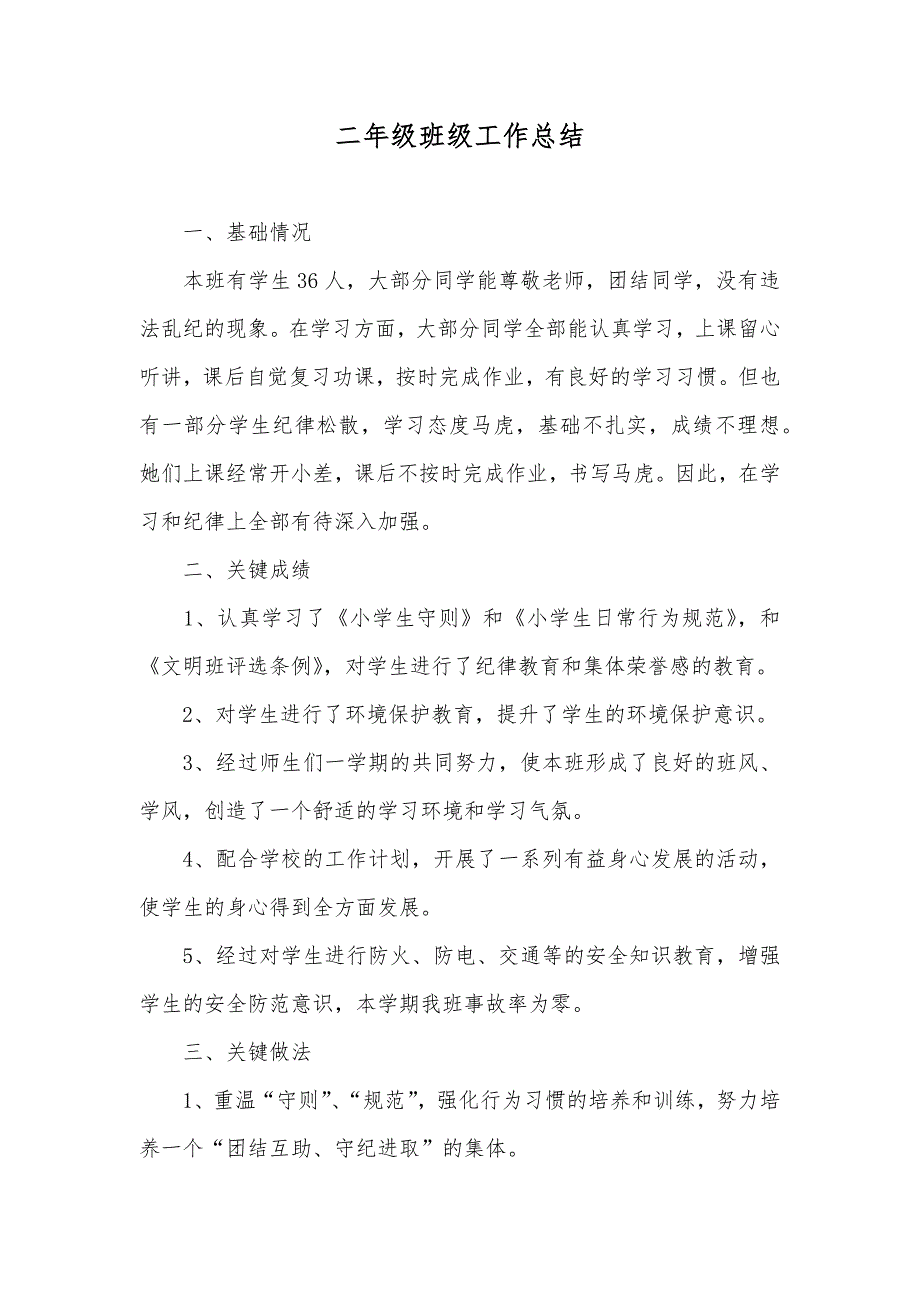 二年级班级工作总结
一、基础情况
本班有学生36人，大部分同学能尊敬老师，团结同学，没有违
法乱纪的现象。在学习方面，大部分同学全部能认真学习，上课留心
听讲，课后自觉复习功课，按时完成作业，有良好的学习习惯。但也
有一部分学生纪律松散，学习态度马虎，基础不扎实，成绩不理想。
她们上课经常开小差，课后不按时完成作业，书写马虎。因此，在学
习和纪律上全部有待深入加强。
二、关键成绩
1、认真学习了《小学生守则》和《小学生日常行为规范》，和
《文明班评选条例》，对学生进行了纪律教育和集体荣誉感的教育。
2、对学生进行了环境保护教育，提升了学生的环境保护意识。
3、经过师生们一学期的共同努力，使本班形成了良好的班风、
学风，创造了一个舒适的学习环境和学习气氛。
4、配合学校的工作计划，开展了一系列有益身心发展的活动，
使学生的身心得到全方面发展。
5、经过对学生进行防火、防电、交通等的安全知识教育，增强
学生的安全防范意识，本学期我班事故率为零。
三、关键做法
1、重温“守则”、“规范”，强化行为习惯的培养和训练，努力培
养一个“团结互助、守纪进取”的集体。